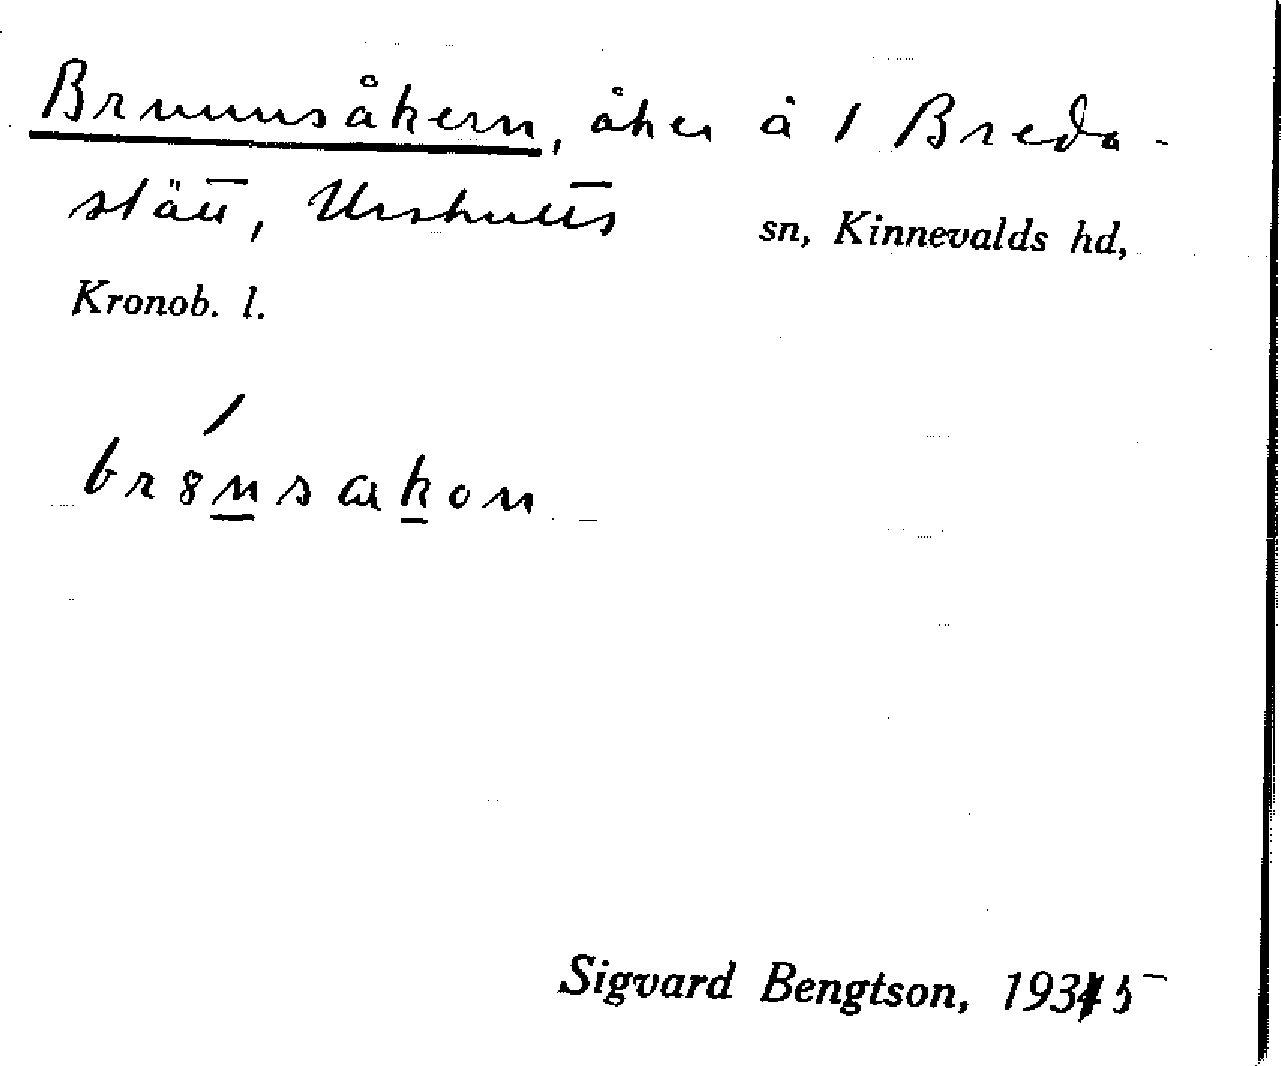 Brunnsåkern, åker å 1 Breda-
stätt, Urshults sn, Kinnevalds hd,
Kronob. l.
br8nsakon
Sigvard Bengtson, 1935